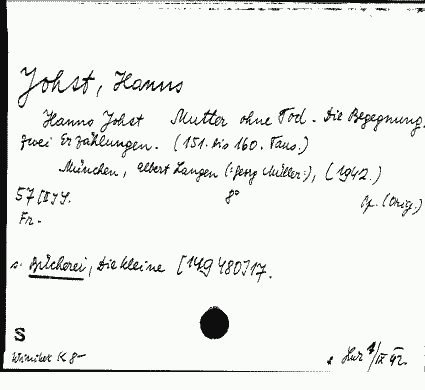 Johst, Hanns
Hanns Johst Mutter ohne Tod. Die Begegnung.
zwei Erzählungen. (151. bis 160. Taus.)
München, Albert Langen (:Georg Müller:), (1942.)
57 S. 8° (Orig.)
Fr.-
s. Bücherei, Die kleine [149 480] 17.
S
K 8-